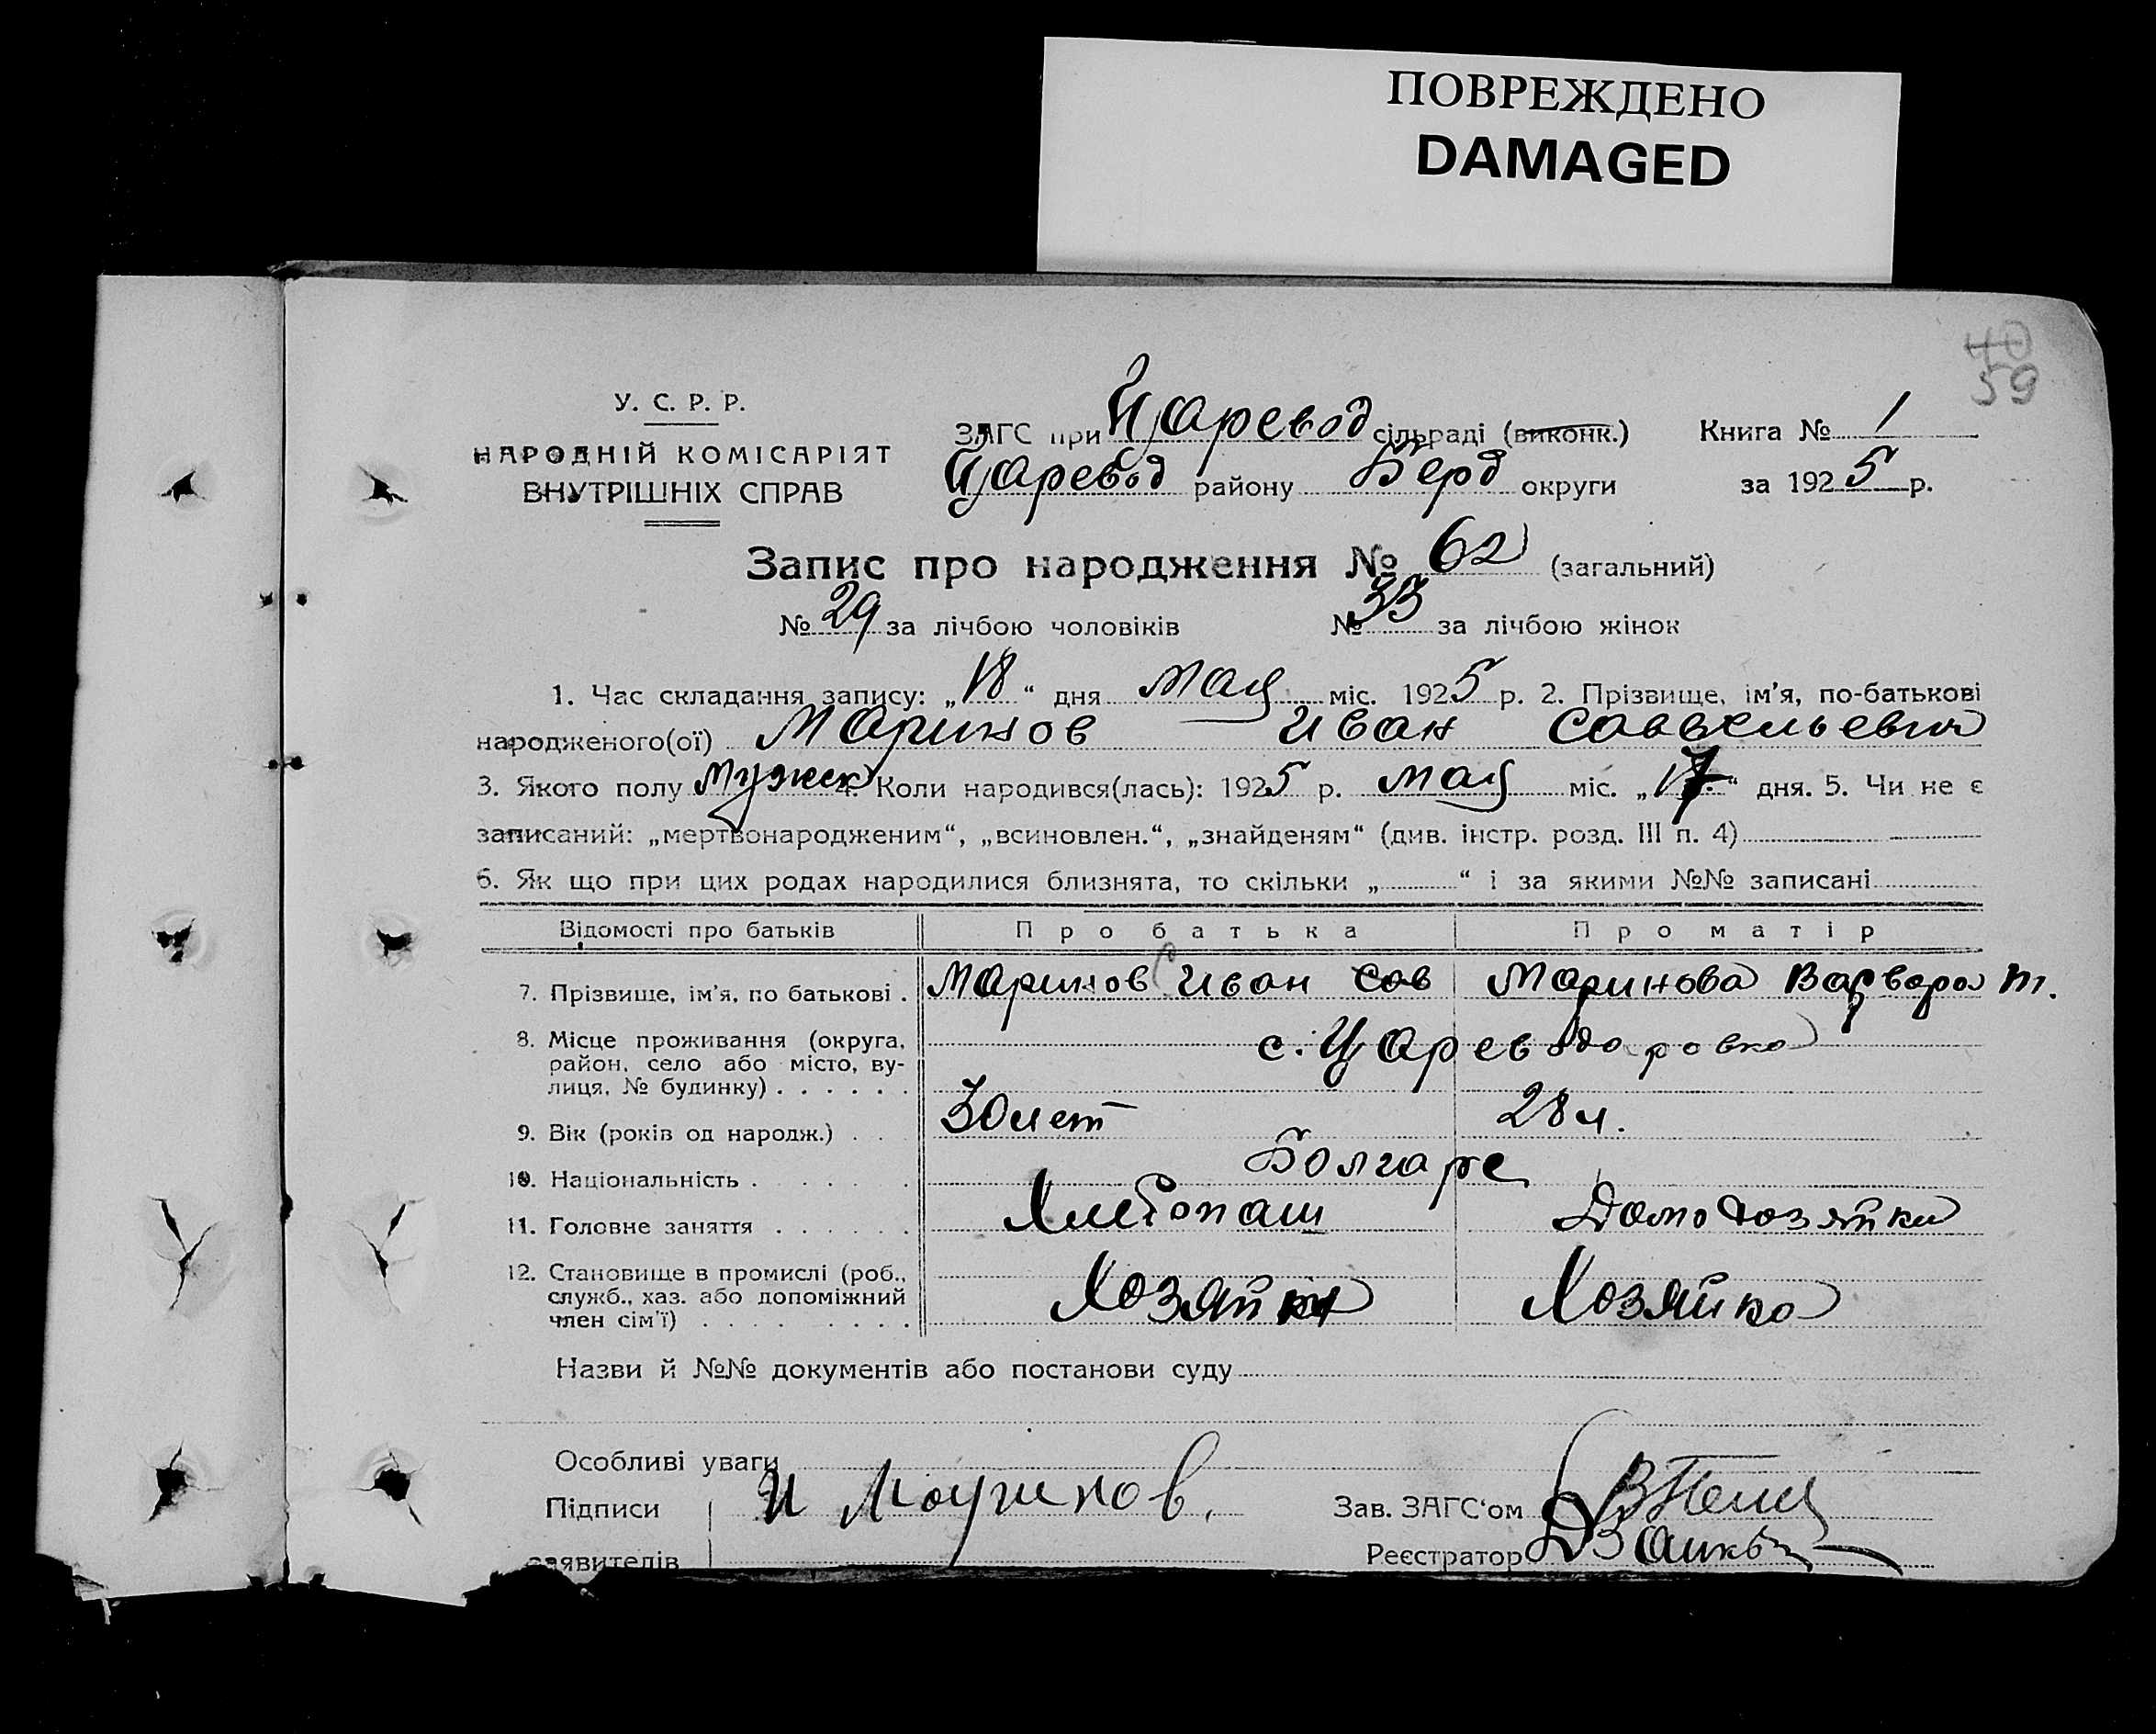 ПОВРЕЖДЕНО
DAMAGED
40
59
У. С. Р. Р.
НАРОДНІЙ КОМІСАРІЯТ
ВНУТРІШНІХ СПРАВ
ЗАГС при Царевод сільраді (виконк.) Книга № 1
Царевод району Берд округи за 1925 р.
Запис про народження № 62 (загальний)
№ 29 за лічбою чоловіків № 33 за лічбою жінок
1. Час складання запису: „18“ дня мая міс. 1925 р. 2. Прізвище, ім'я, по-батькові
народженого(ої) Маринов Иван
3. Якого полу мужск 4. Коли народився(лась): 1925 р. мая міс. „17“ дня. 5. Чи не є
записаний: „мертвонародженим“, „всиновлен.“, „знайденям“ (див. інстр. розд. III п. 4)
6. Як що при цих родах народилися близнята, то скільки „ “ і за якими №№ записані
Відомості про батьків Про батька Про матір
7. Прізвище, ім'я, по батькові . Маринов Иван Сав Маринова Варвара т.
8. Місце проживання (округа,
район, село або місто, ву-
лиця, № будинку) . . . . . . с. Цареводаровка
9. Вік (років од народж.) . . . 30 лет 28 л.
10. Національність . . . . . . Болгаре
11. Головне заняття . . . . . . Хлебопаш Домохозяйка
12. Становище в промислі (роб.,
служб., хаз. або допоміжний
член сім'ї) . . . . . . . . . Хозяйн Хозяйка
Назви й №№ документів або постанови суду
Особливі уваги
Підписи И Маринов. Зав. ЗАГС'ом
заявителів Реєстратор